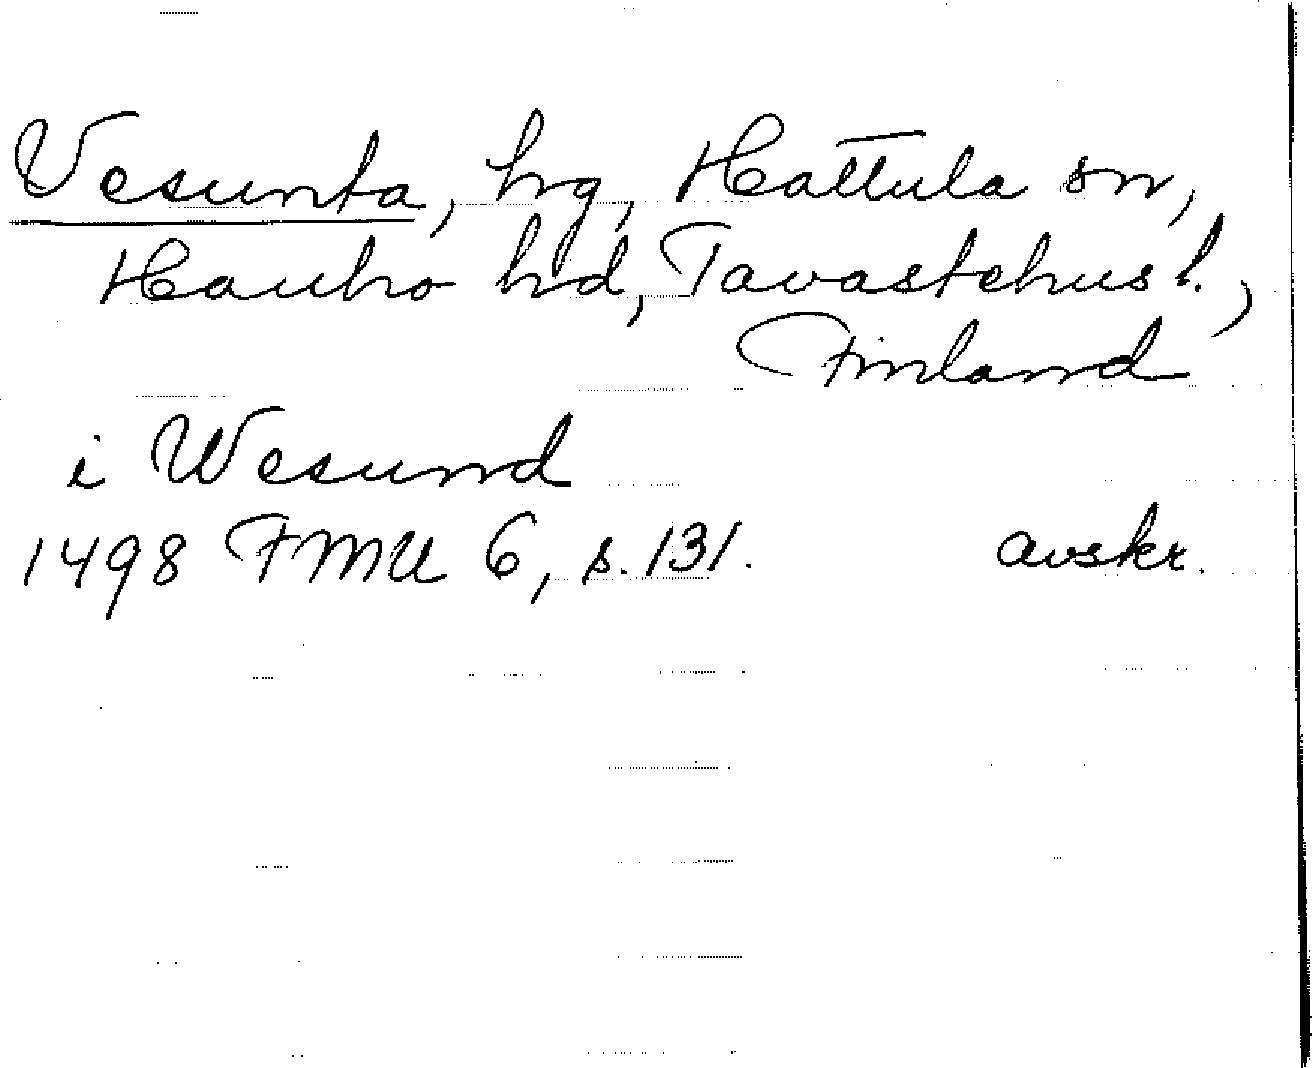 Vesunta, hg, Hattula sn,
Hauho hd, Tavastehus l.,
Finland
i Wesund
1498 FMU 6, s. 131. avskr.